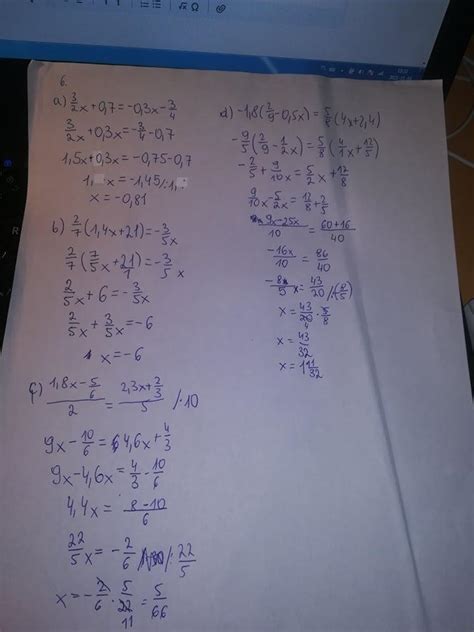 6.
a) 3/2x+0,7=-0,3x-3/4
3/2x+0,3x=-3/4-0,7
1,5x+0,3x=-0,75-0,7
x=-1,45/:1,
x=-0,81
b) 2/7(1,4x+21)=-3/5x
2/7(7/5x+21/1)=-3/5x
2/5x+6=-3/5x
2/5x+3/5x=-6
x=-6
c) (1,8x-5/6)/2=(2,3x+2/3)/5 /·10
9x-10/6=4,6x+4/3
9x-4,6x=4/3-10/6
4,4x=(8-10)/6
22/5x=-2/6 /:22/5
x=-2/6·5/22=5/66
11
d) -1,8(2/9-0,5x)=5/8(4x+2,4)
-9/5(2/9-1/2x)=5/8(4/1x+12/5)
-2/5+9/10x=5/2x+12/8
9/10x-5/2x=12/8+2/5
(9x-25x)/10=(60+16)/40
-16x/10=86/40
-8/5x=43/20 /:(8/5)
x=43/20·5/8
4
x=43/32
x=1 11/32